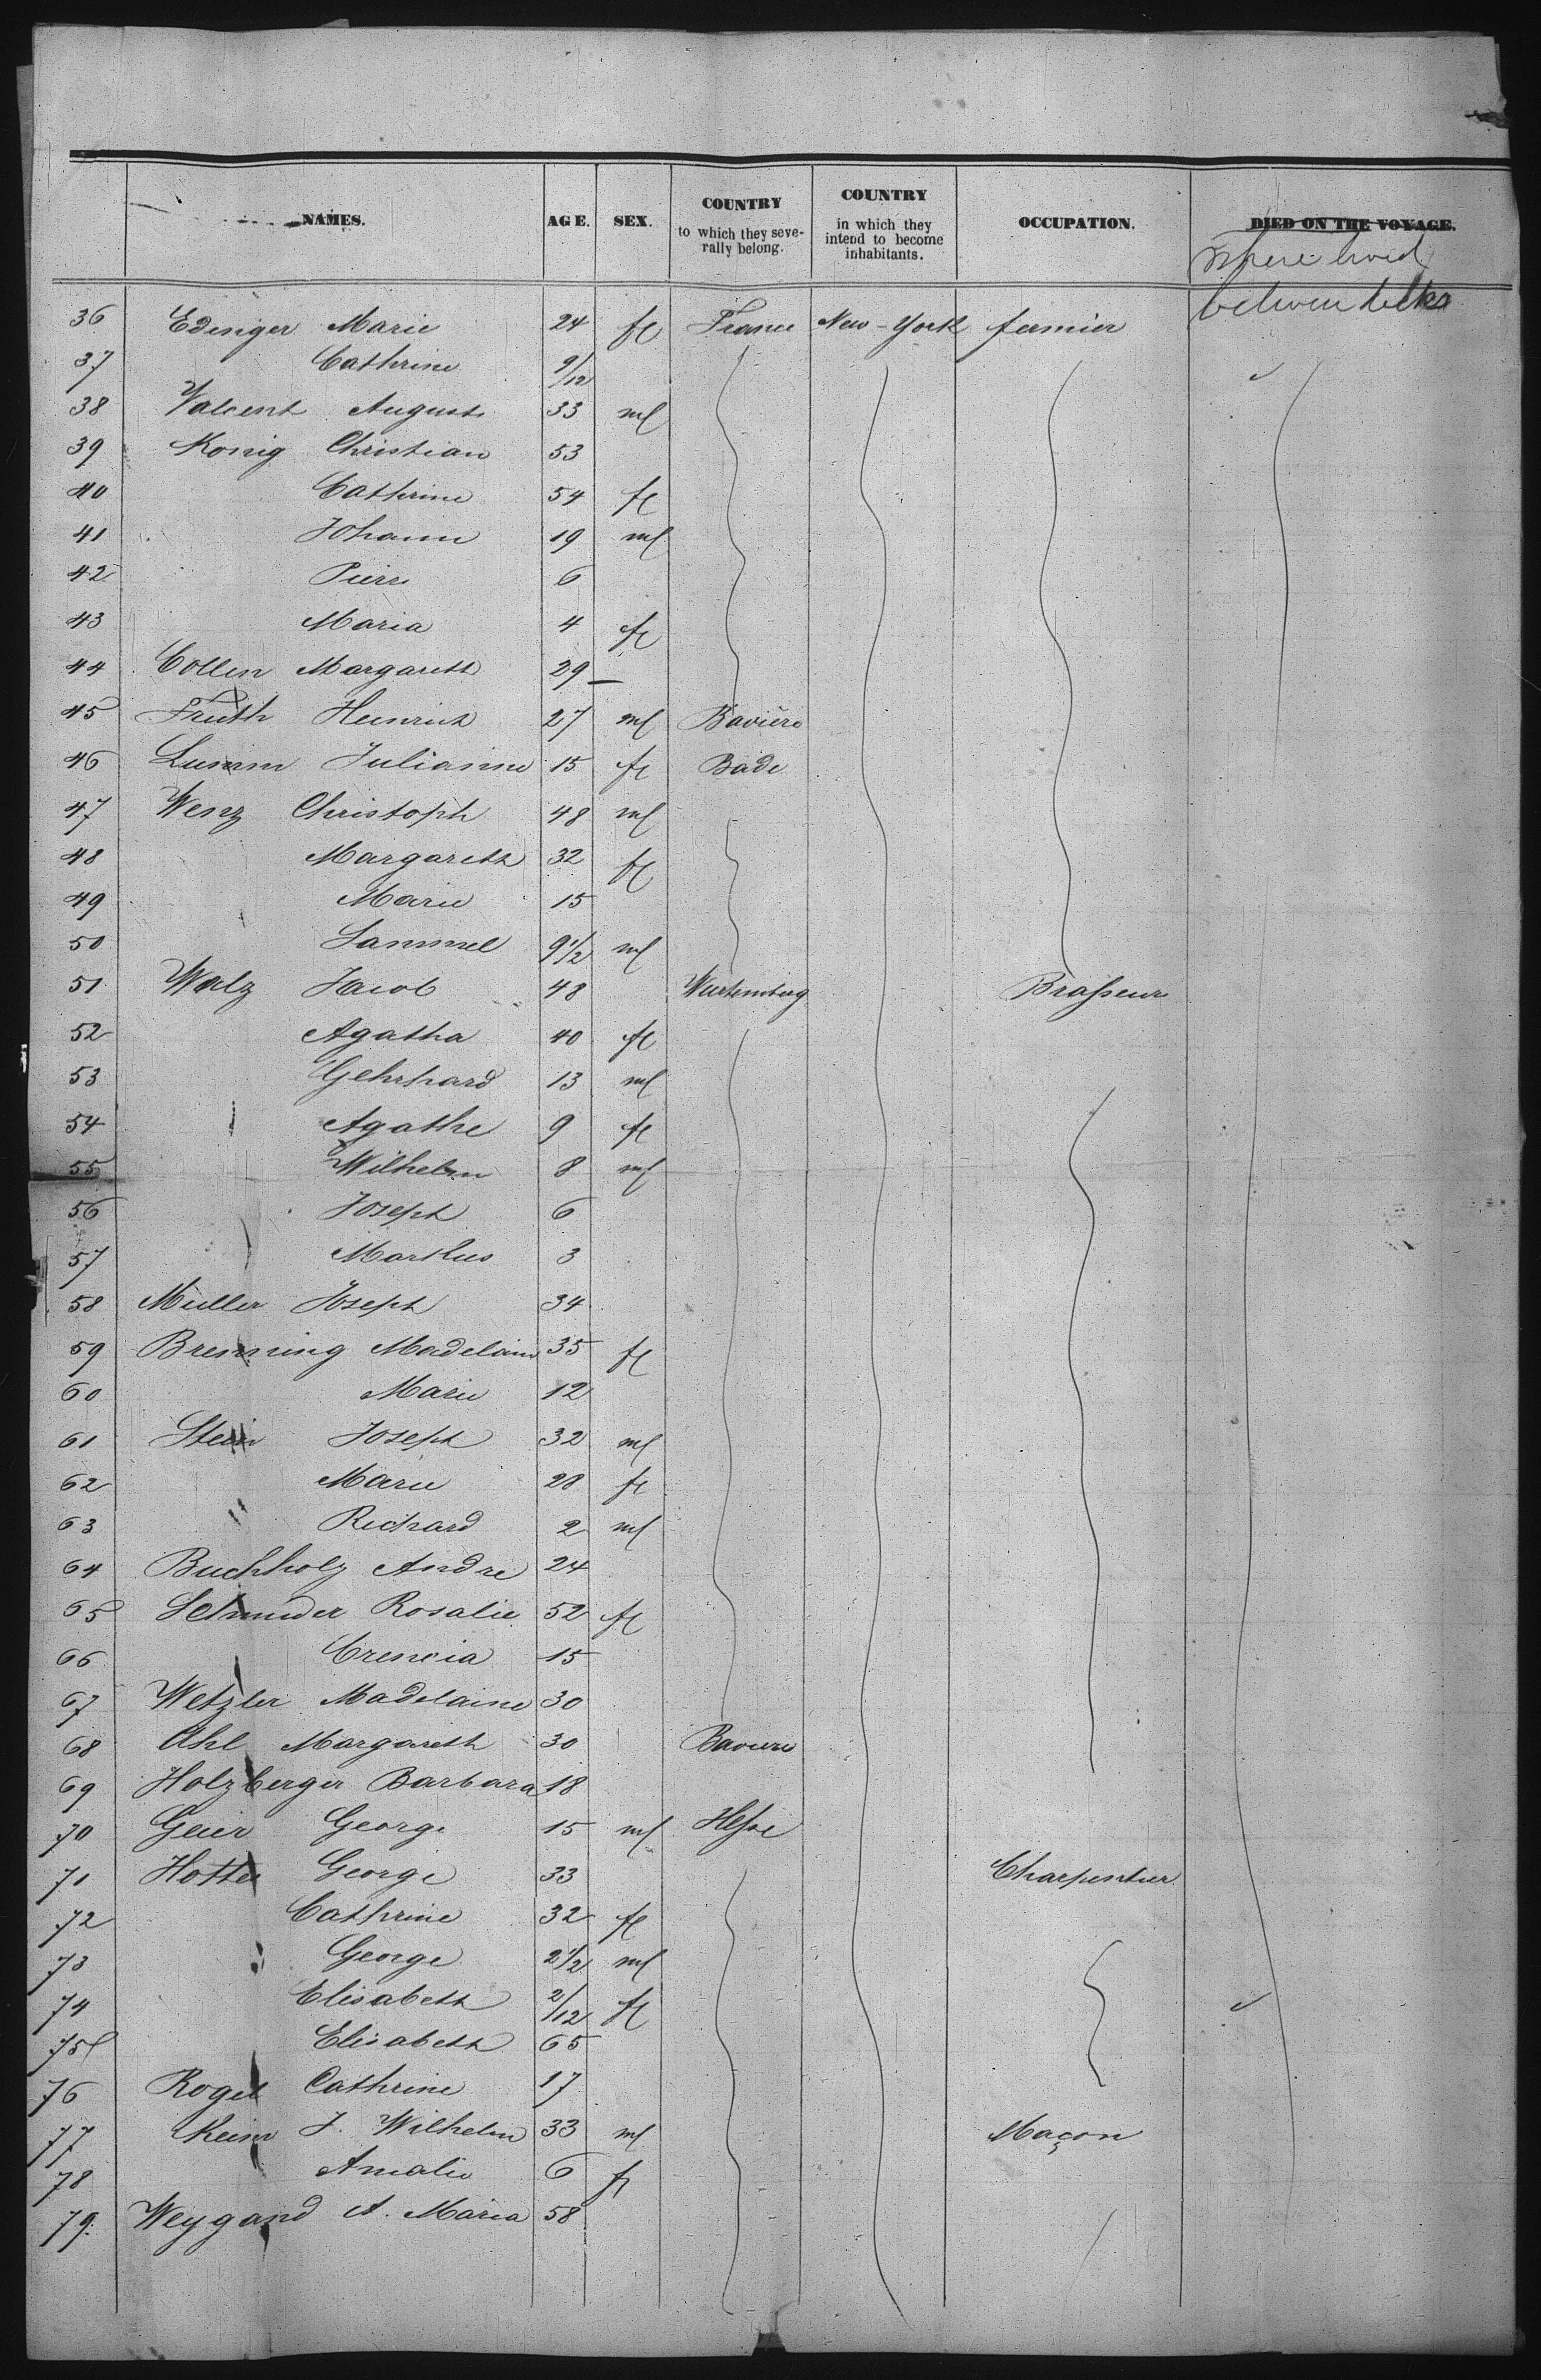 NAMES. AGE. SEX. COUNTRY to which they severally belong. COUNTRY in which they intend to become inhabitants. OCCUPATION. DIED ON THE VOYAGE.
Where lived
between decks
36 Edinger Marie 24 fl France New-York fermier
37 Cathrine 9/12
38 August 33 ml
39 Konig Christian 53
40 Cathrine 54 fl
41 Johann 19 ml
42 Pierre 6
43 Maria 4 fl
44 Collin Margareth 29 —
45 Fruth Heinrich 27 ml Bavière
46 Julianne 15 fl Bade
47 Wenz Christoph 48 ml
48 Margareth 32 fl
49 Marie 15
50 Sammel 9 1/2 ml
51 Walz Jacob 48 Wurtemberg Brasseur
52 Agatha 40 fl
53 Gehrhard 13 ml
54 Agathe 9 fl
55 Wilhelm 8 ml
56 Joseph 6
57 3
58 Muller Joseph 34
59 Brenning Madelaine 35 fl
60 Marie 12
61 Stein Joseph 32 ml
62 Marie 28 fl
63 Richard 2 ml
64 Buchholz Andre 24
65 Rosalie 52 fl
66 Crencia 15
67 Wetzler Madelaine 30
68 Ahl Margareth 30 Baviere
69 Holzberger Barbara 18
70 Geier George 15 ml Hesse
71 George 33 Charpentier
72 Cathrine 32 fl
73 George 2 1/2 ml
74 Elisabeth 2/12 fl
75 Elisabeth 65
76 Rogel Cathrine 17
77 Keim J. Wilhelm 33 ml Maçon
78 Amalie 6 fl
79. Weygand A. Maria 58